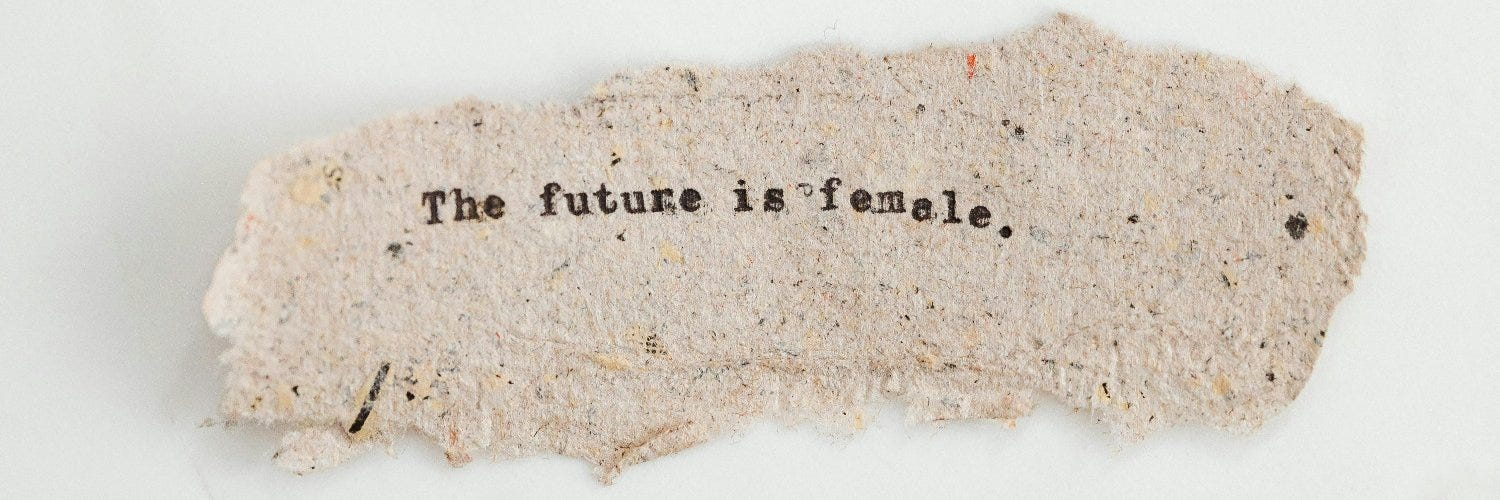 The future is female.